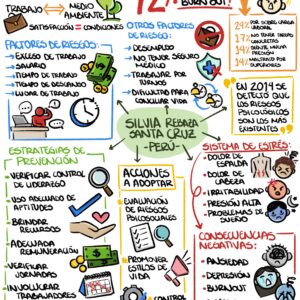 TRABAJO MEDIO
AMBIENTE
SATISFACCIÓN = CONDICIONES
72%
BURNOUT!
FACTORES DE RIESGO:
→ EXCESO DE TRABAJO
→ SALARIO
→ TIEMPO DE TRABAJO
→ TIEMPO DE DESCANSO
→ LUGAR DE TRABAJO
OTROS FACTORES
DE RIESGO:
→ DESEMPLEO
→ NO TENER SEGURO
MÉDICO
→ TRABAJAR POR
TURNOS
→ DIFICULTAD PARA
CONCILIAR VIDA
POR SOBRE CARGA
LABORAL
NO TENER TAREAS
CONCRETAS
19%
MALTRATO POR
SUPERIORES
EN 2014 SE
DETECTÓ QUE
LOS RIESGOS
PSICOLÓGICOS
SON LOS MÁS
EXISTENTES
SILVIA REBAZA
SANTA CRUZ
-PERÚ-
ESTRATEGIAS DE
PREVENCIÓN
→ VERIFICAR CONTROL
DE LIDERAZGO
→ USO ADECUADO DE
APTITUDES
→ BRINDAR
RECURSOS
→ ADECUADA
REMUNERACIÓN
→ VERIFICAR
JORNADAS
→ INVOLUCRAR
TRABAJADORES
ACCIONES
A ADOPTAR
→ EVALUACIÓN
DE RIESGOS
PSICOSOCIALES
→ PROMOVER
ESTILOS DE
VIDA
→ CONTROL
SISTEMA DE ESTRÉS:
→ DOLOR DE
ESPALDA
→ DOLOR DE
CABEZA
→ IRRITABILIDAD
→ PRESIÓN ALTA
→ PROBLEMAS DE
SUEÑO
CONSECUENCIAS
NEGATIVAS:
→ ANSIEDAD
→ DEPRESIÓN
→ BURNOUT